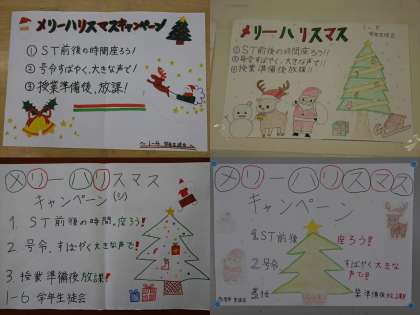 メリーハリスマスキャンペーン
①ST前後の時間座ろう!
②号令すばやく、大きな声で!
③授業準備後、放課!
メリーハリスマス
①ST前後の時間座ろう!!
②号令すばやく、大きな声で!!
③授業準備後放課!!
メリーハリスマス
キャンペーン
1. ST前後の時間、座ろう!
2. 号令、すばやく大きな声で!
3. 授業準備後放課!
1-6 学年生徒会
メリーハリスマス
キャンペーン
1.ST前後 座ろう!
2.号令 すばやく大きな
声で!
業準備後放課!